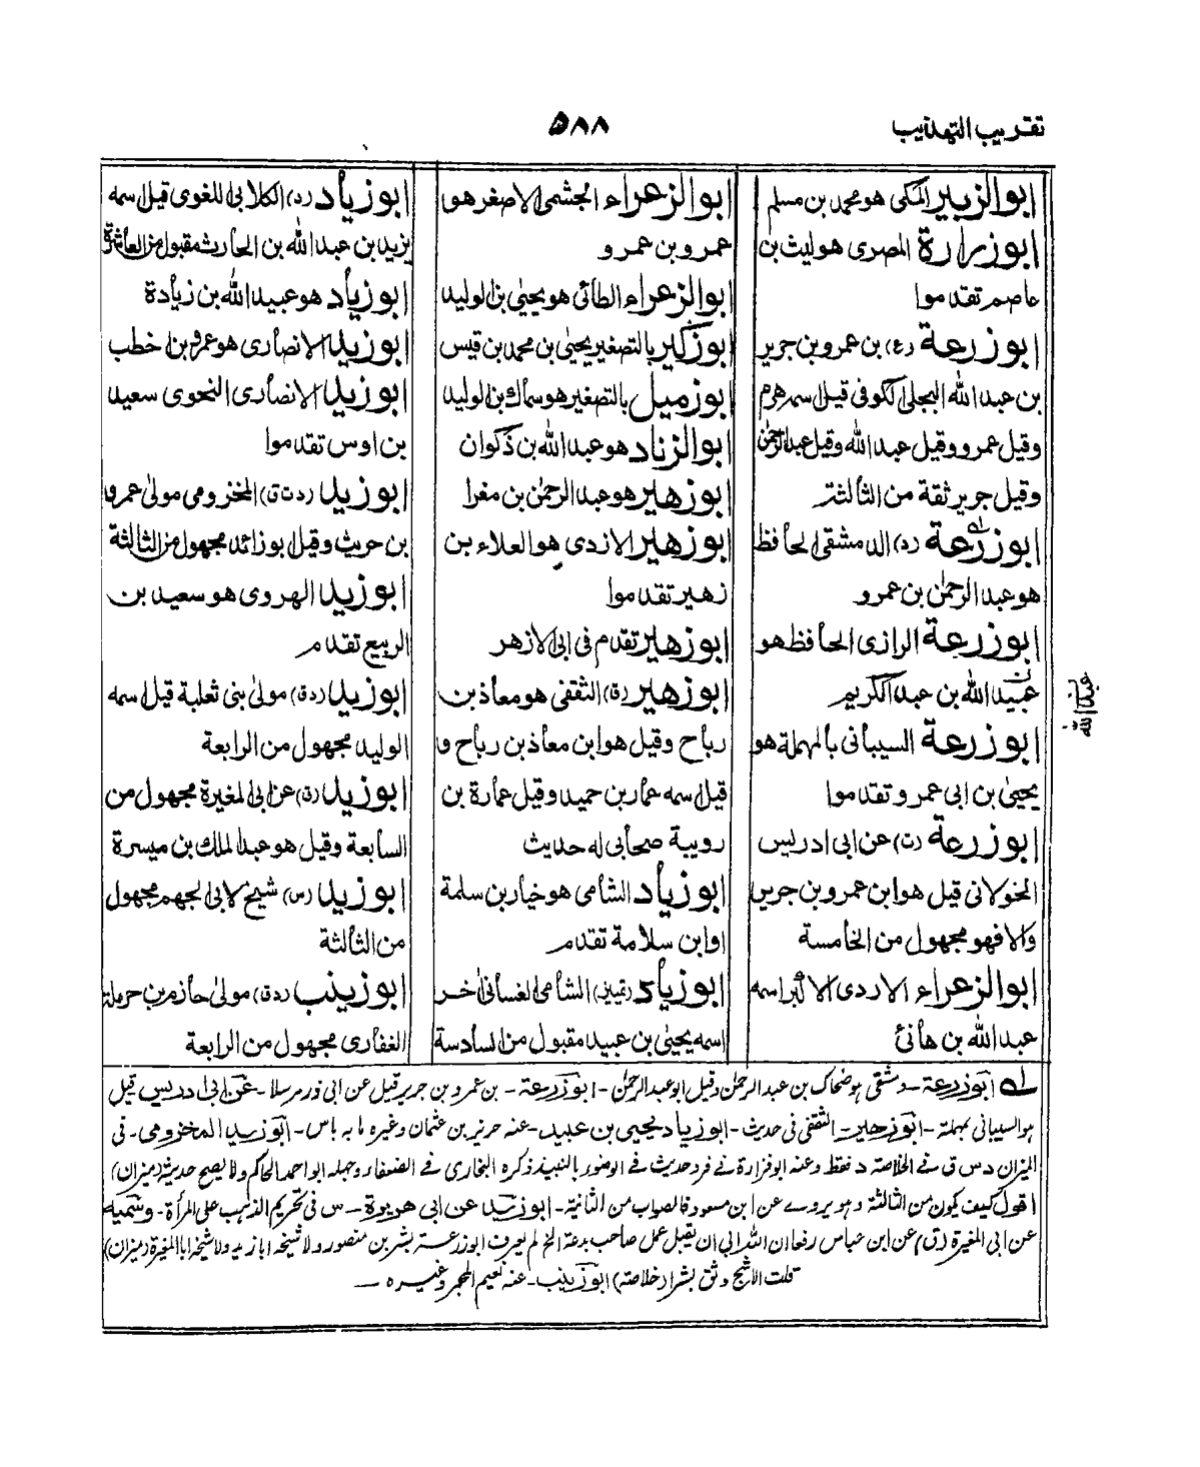 تقريب التهذيب
٥٨٨
ابوالزبير المكى هو محمد بن مسلم
ابوزرارة المصرى هو ليث بن
عاصم تقدموا
ابوزرعة (ع) بن عمرو بن جرير
بن عبدالله البجلى الكوفى قيل اسمه هرم
وقيل عمرو وقيل عبدالله وقيل عبدالرحمٰن
وقيل جرير ثقة من الثالثة
ابوزرعة (د) الدمشقى الحافظ
هو عبدالرحمٰن بن عمرو
ابوزرعة الرازى الحافظ هو
عبيدالله بن عبدالكريم
ابوزرعة السيبانى بالمهملة هو
يحيىٰ بن ابى عمرو تقدموا
ابوزرعة (ت) عن ابى ادريس
الخولانى قيل هو ابن عمرو بن جرير
والا فهو مجهول من الخامسة
ابوالزعراء الازدى الاكبر اسمه
عبدالله بن هانئ
ابوالزعراء الجشمى الاصغر هو
عمرو بن عمرو
ابوالزعراء الطائى هو يحيىٰ بن الوليد
ابوزكير بالتصغير يحيىٰ بن محمد بن قيس
ابوزميل بالتصغير هو سماك بن الوليد
ابوالزناد هو عبدالله بن ذكوان
ابوزهير هو عبدالرحمٰن بن مغرا
ابوزهير الازدى هو العلاء بن
زهير تقدموا
ابوزهير تقدم فى ابى الازهر
ابوزهير (ق) الثقفى هو معاذ بن
رباح وقيل هو ابن معاذ بن رباح و
قيل اسمه عمار بن حميد وقيل عمارة بن
رويبة صحابى له حديث
ابوزياد الشامى هو خيار بن سلمة
او ابن سلامة تقدم
ابوزياد (تمييز) الشامى الغسانى اٰخر
اسمه يحيىٰ بن عبيد مقبول من السادسة
ابوزياد (د) الكلابى اللغوى قيل اسمه
يزيد بن عبدالله بن الحارث مقبول من العاشرة
ابوزياد هو عبيدالله بن زيادة
ابوزيد الانصارى هو عمرو بن اخطب
ابوزيد الانصارى النحوى سعيد
بن اوس تقدموا
ابوزيد (دت ق) المخزومى مولىٰ عمرو
بن حريث وقيل ابوزائد مجهول من الثالثة
ابوزيد الهروى هو سعيد بن
الربيع تقدم
ابوزيد (د ق) مولىٰ بنى ثعلبة قيل اسمه
الوليد مجهول من الرابعة
ابوزيد (ق) عن ابى المغيرة مجهول من
السابعة وقيل هو عبدالملك بن ميسرة
ابوزيد (س) شيخ لابى الجهم مجهول
من الثالثة
ابوزينب (د ق) مولىٰ حازم بن حرملة
الغفارى مجهول من الرابعة
عبدالله
له ابوزرعة - دمشقى ہو ضحاك بن عبدالرحمٰن وقيل ابو عبدالرحمٰن - ابوزرعة - بن عمرو بن جرير قيل عن ابى ذر مرسلا - عن ابى ادريس قيل
ہو السيبانى بمهملة - ابوزهير - الثقفى فى حديث - ابوزياد يحيى بن عبيد - عنه حريز بن عثمان وغيره ما به باس - ابوزيد المخزومى - فى
الميزان د س ق فى الخلاصة د فقط وعنه ابوفزارة فى فرد حديث فى الوضوء بالنبيذ ذكره البخارى فى الضعفاء وجهله ابو احمد الحاكم ولا يصح حديثه (ميزان)
اقول كيف يكون من الثالثة وہو يروى عن ابن مسعود فالصواب من الثانية - ابوزيد عن ابى هريرة - س فى تحريم الذهب على المرأة - وسميه
عن ابى المغيرة (ق) عن ابن عباس رفعا ان الله ابى ان يقبل عمل صاحب بدعة الخ لم يعرف ابوزرعة بشر بن منصور ولا شيخه ابا زيد ولا شيخه ابا المغيرة (ميزان)
قلت الاشج وثق بشرا (خلاصة) ابوزينب - عنه نعيم المجمر وغيره